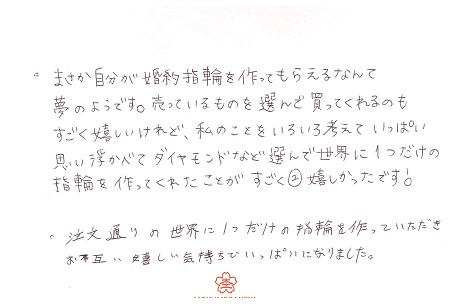 。まさか自分が婚約指輪を作ってもらえるなんて
夢のようです。売っているものを選んで買ってくれるのも
すごく嬉しいけれど、私のことをいろいろ考えていっぱい
思い浮かべてダイヤモンドなど選んで世界に1つだけの
指輪を作ってくれたことがすごく②嬉しかったです!
。注文通りの世界に1つだけの指輪を作っていただき
お互い嬉しい気持ちでいっぱいになりました。